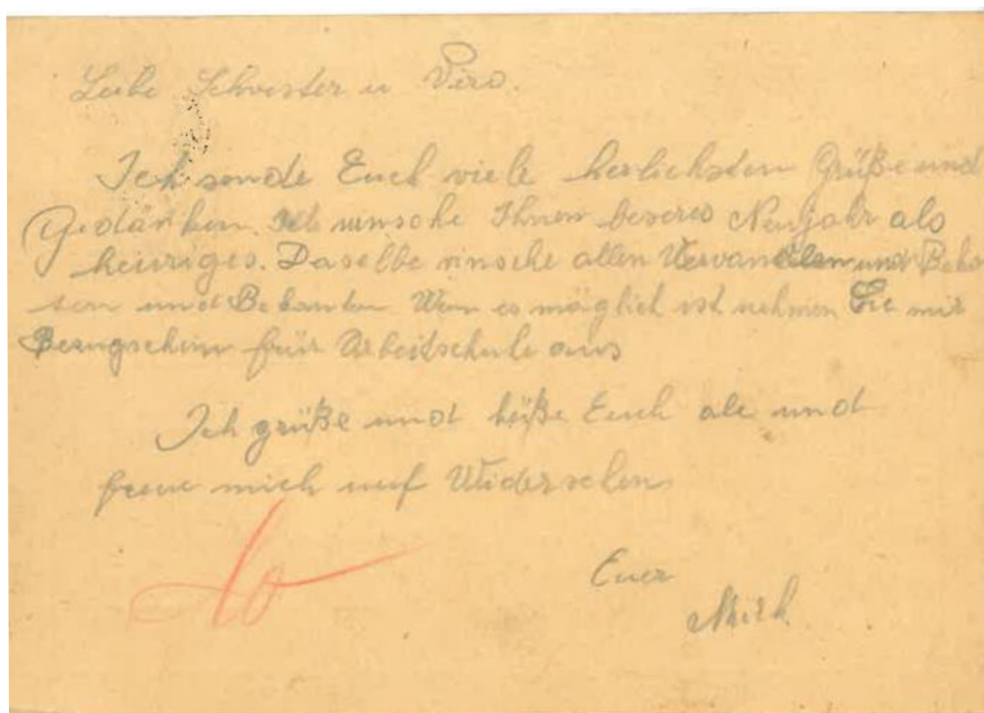 Liebe Schvester u Viro.
Ich sende Euch viele herlichsten Grüße und
Gedänken. Ich wnsche Ihnen beseres Neujahr als
heuriges. Daselbe winsche allen Vervandten und
und Bekanten Wen es möglich ist nehmen Sie mir
Bezugschein für Arbeitschuhe aus
Ich grüße und küße Euch ale und
freue mich auf Widersehen
Euer